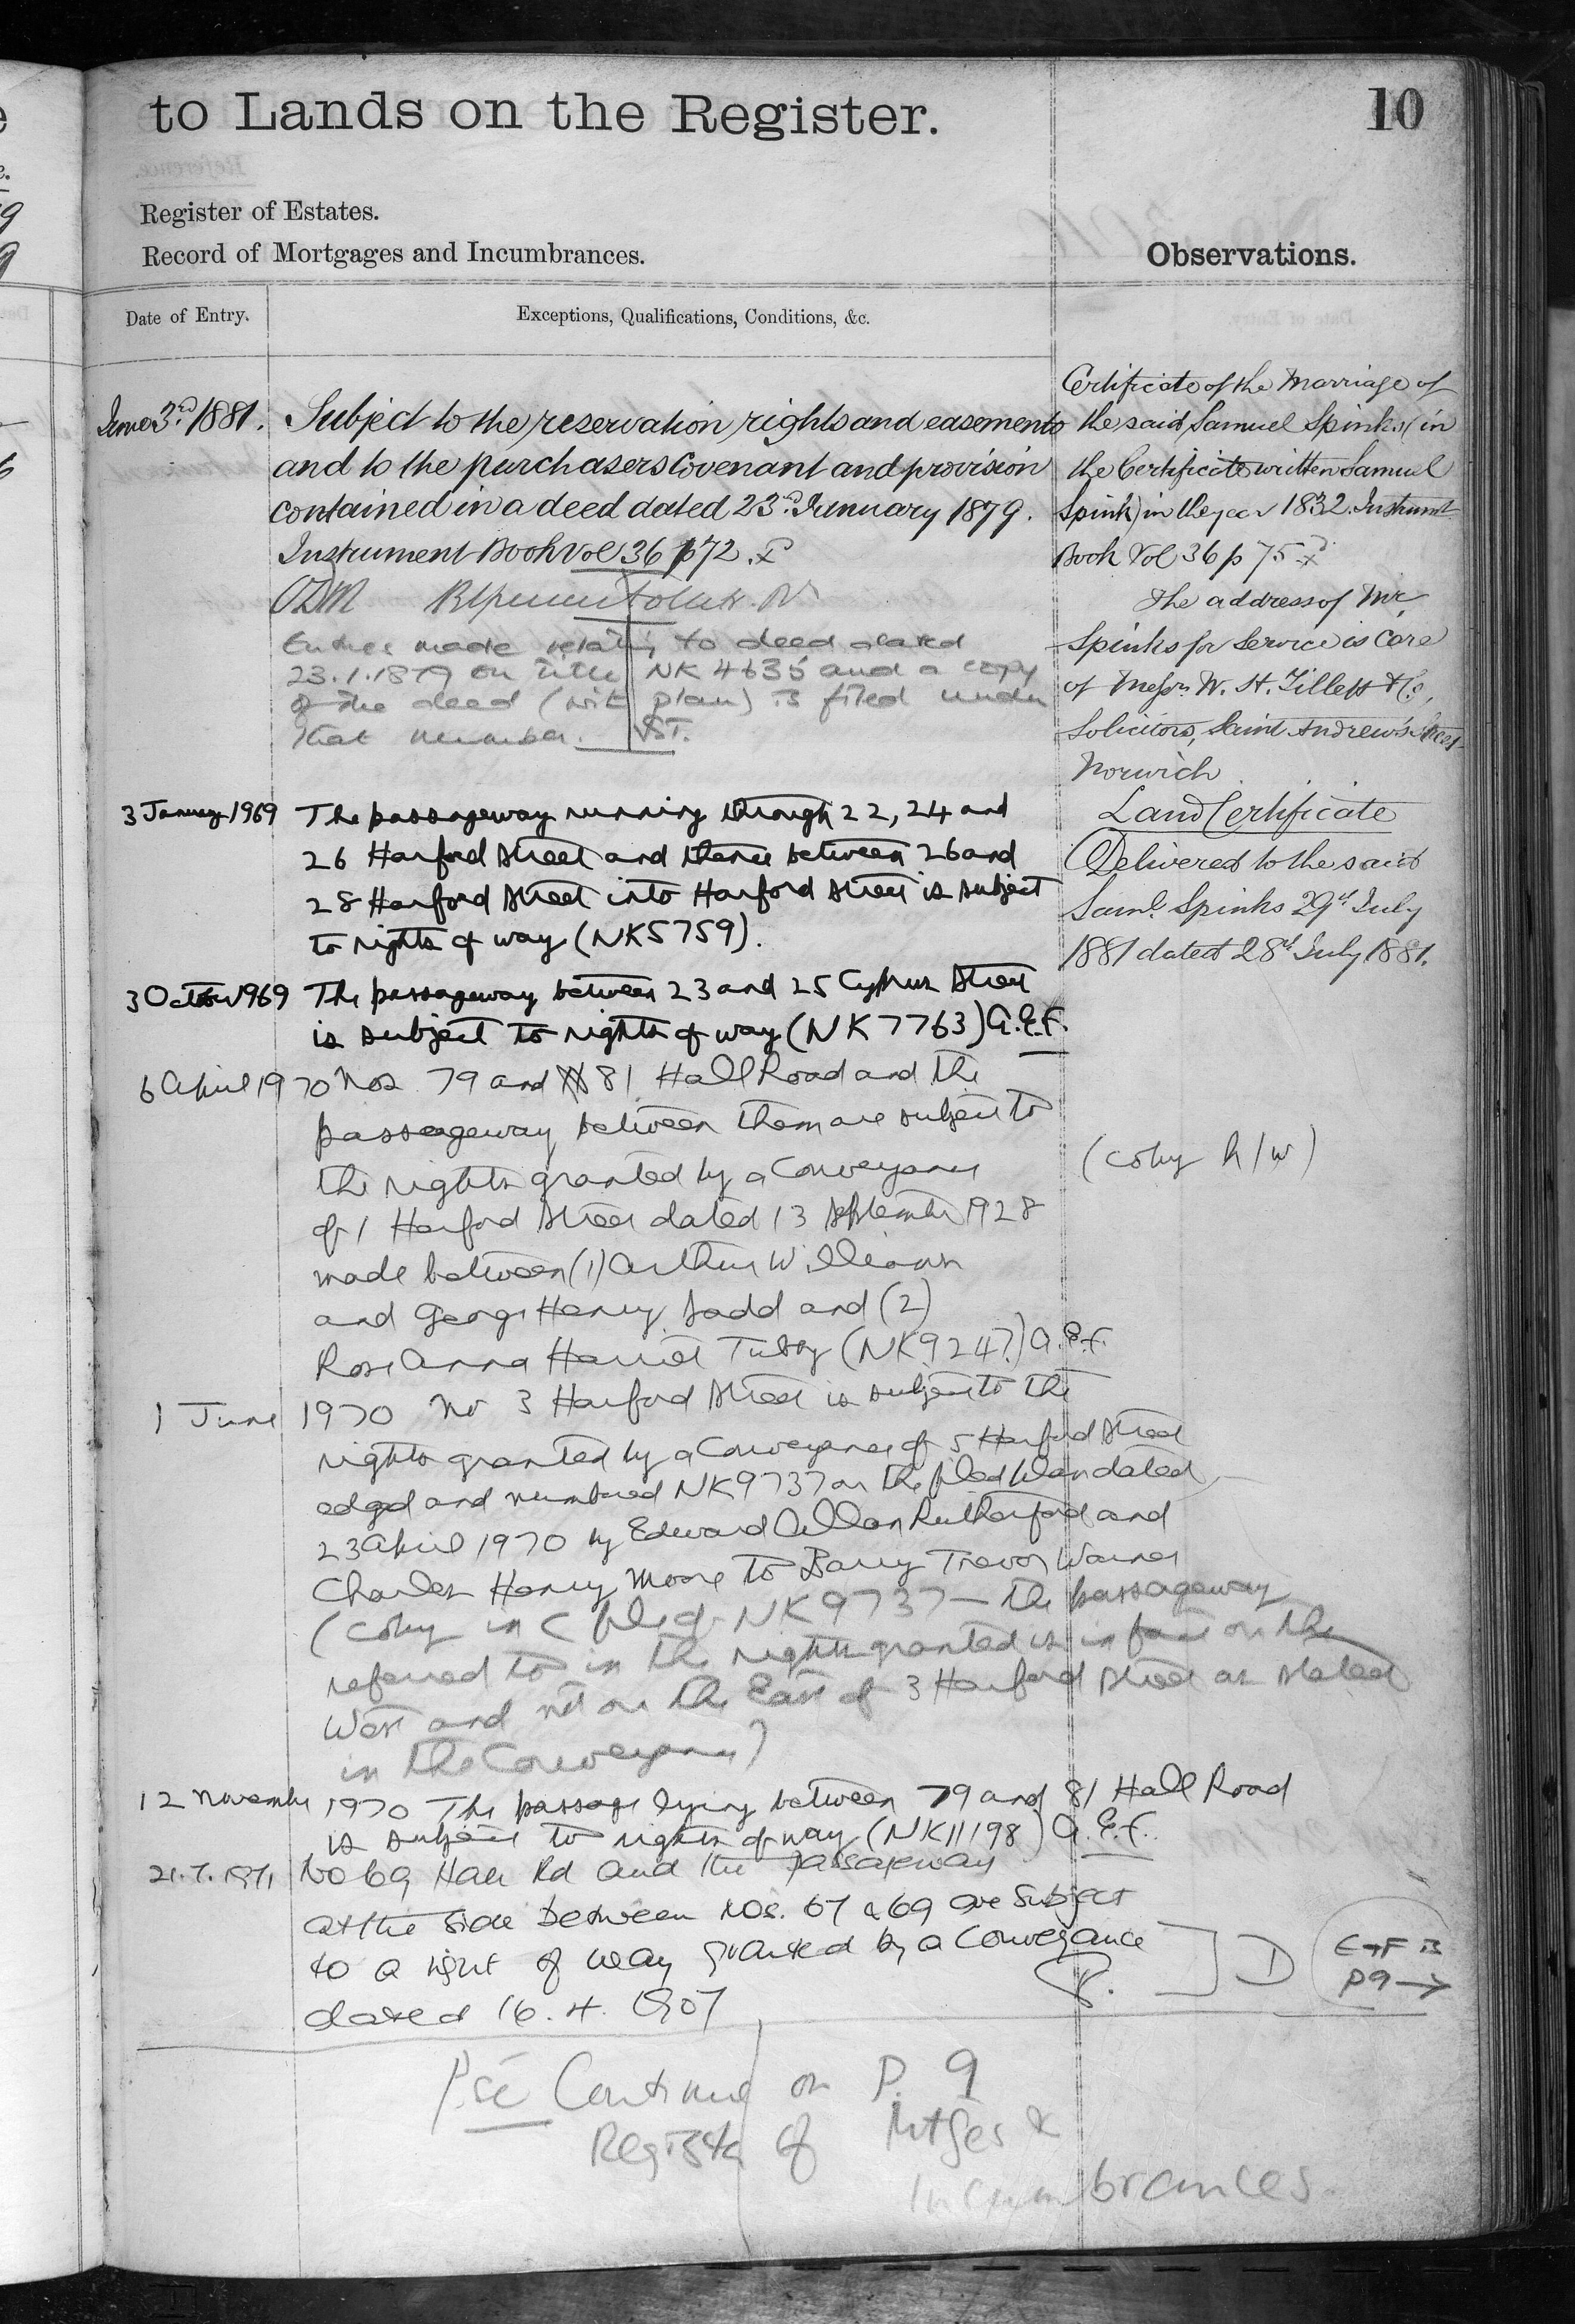 to Lands on the Register.
10
Register of Estates.
Record of Mortgages and Incumbrances.
Observations.
Date of Entry.
Exceptions, Qualifications, Conditions, &c.
June 3rd 1881. Subject to the reservation rights and easements
and to the purchasers Covenant and provision
contained in a deed dated 23rd January 1879.
Instrument Book Vol 36 p 72.
Entries made relating to deed dated
23.1.1879 on title NK 4635 and a copy
of the deed (with plan) is filed under
that number.
3 January 1969 The passageway running through 22, 24 and
26 Harford Street and thence between 26 and
28 Harford Street into Harford Street is subject
to rights of way (NK5759).
3 October 1969 The passageway between 23 and 25 Cyprus Street
is subject to rights of way (NK7763) A.E.F.
6 April 1970 Nos 79 and 81 Hall Road and the
passageway between them are subject to
the rights granted by a Conveyance
of 1 Harford Street dated 13 September 1928
made between (1) Arthur Williams
and George Henry Ladd and (2)
Rose Anna Harriet Tubby (NK9247) A.E.F.
1 June 1970 No 3 Harford Street is subject to the
rights granted by a Conveyance of 5 Harford Street
edged and numbered NK9737 on the filed plan dated
23 April 1970 by Edward Allan Rutherford and
Charles Henry Moore to Barry Trevor Warnes
(copy in C file of NK9737 - the passageway
referred to in the rights granted is in fact on the
West and not on the East of 3 Harford Street as stated
in the Conveyance)
12 November 1970 The passage lying between 79 and 81 Hall Road
is subject to rights of way (NK11198) A.E.F.
21.7.1971 No 69 Hall Rd and the passageway
at the side between nos. 67 & 69 are subject
to a right of way granted by a Conveyance
dated 16.4.1907
D
E+F is
P9 →
Pse Continue on P. 9
Register of Mtges &
Incumbrances.
Certificate of the Marriage of
the said Samuel Spinks (in
the Certificate written Samuel
Spink) in the year 1832. Instrumt
Book Vol 36 p 75
The address of Mr
Spinks for Service is Care
of Messrs W. H. Tillett & Co,
Solicitors, Saint Andrew's Street
Norwich
Land Certificate
Delivered to the said
Saml. Spinks 29th July
1881 dated 28th July 1881.
(copy h/w)